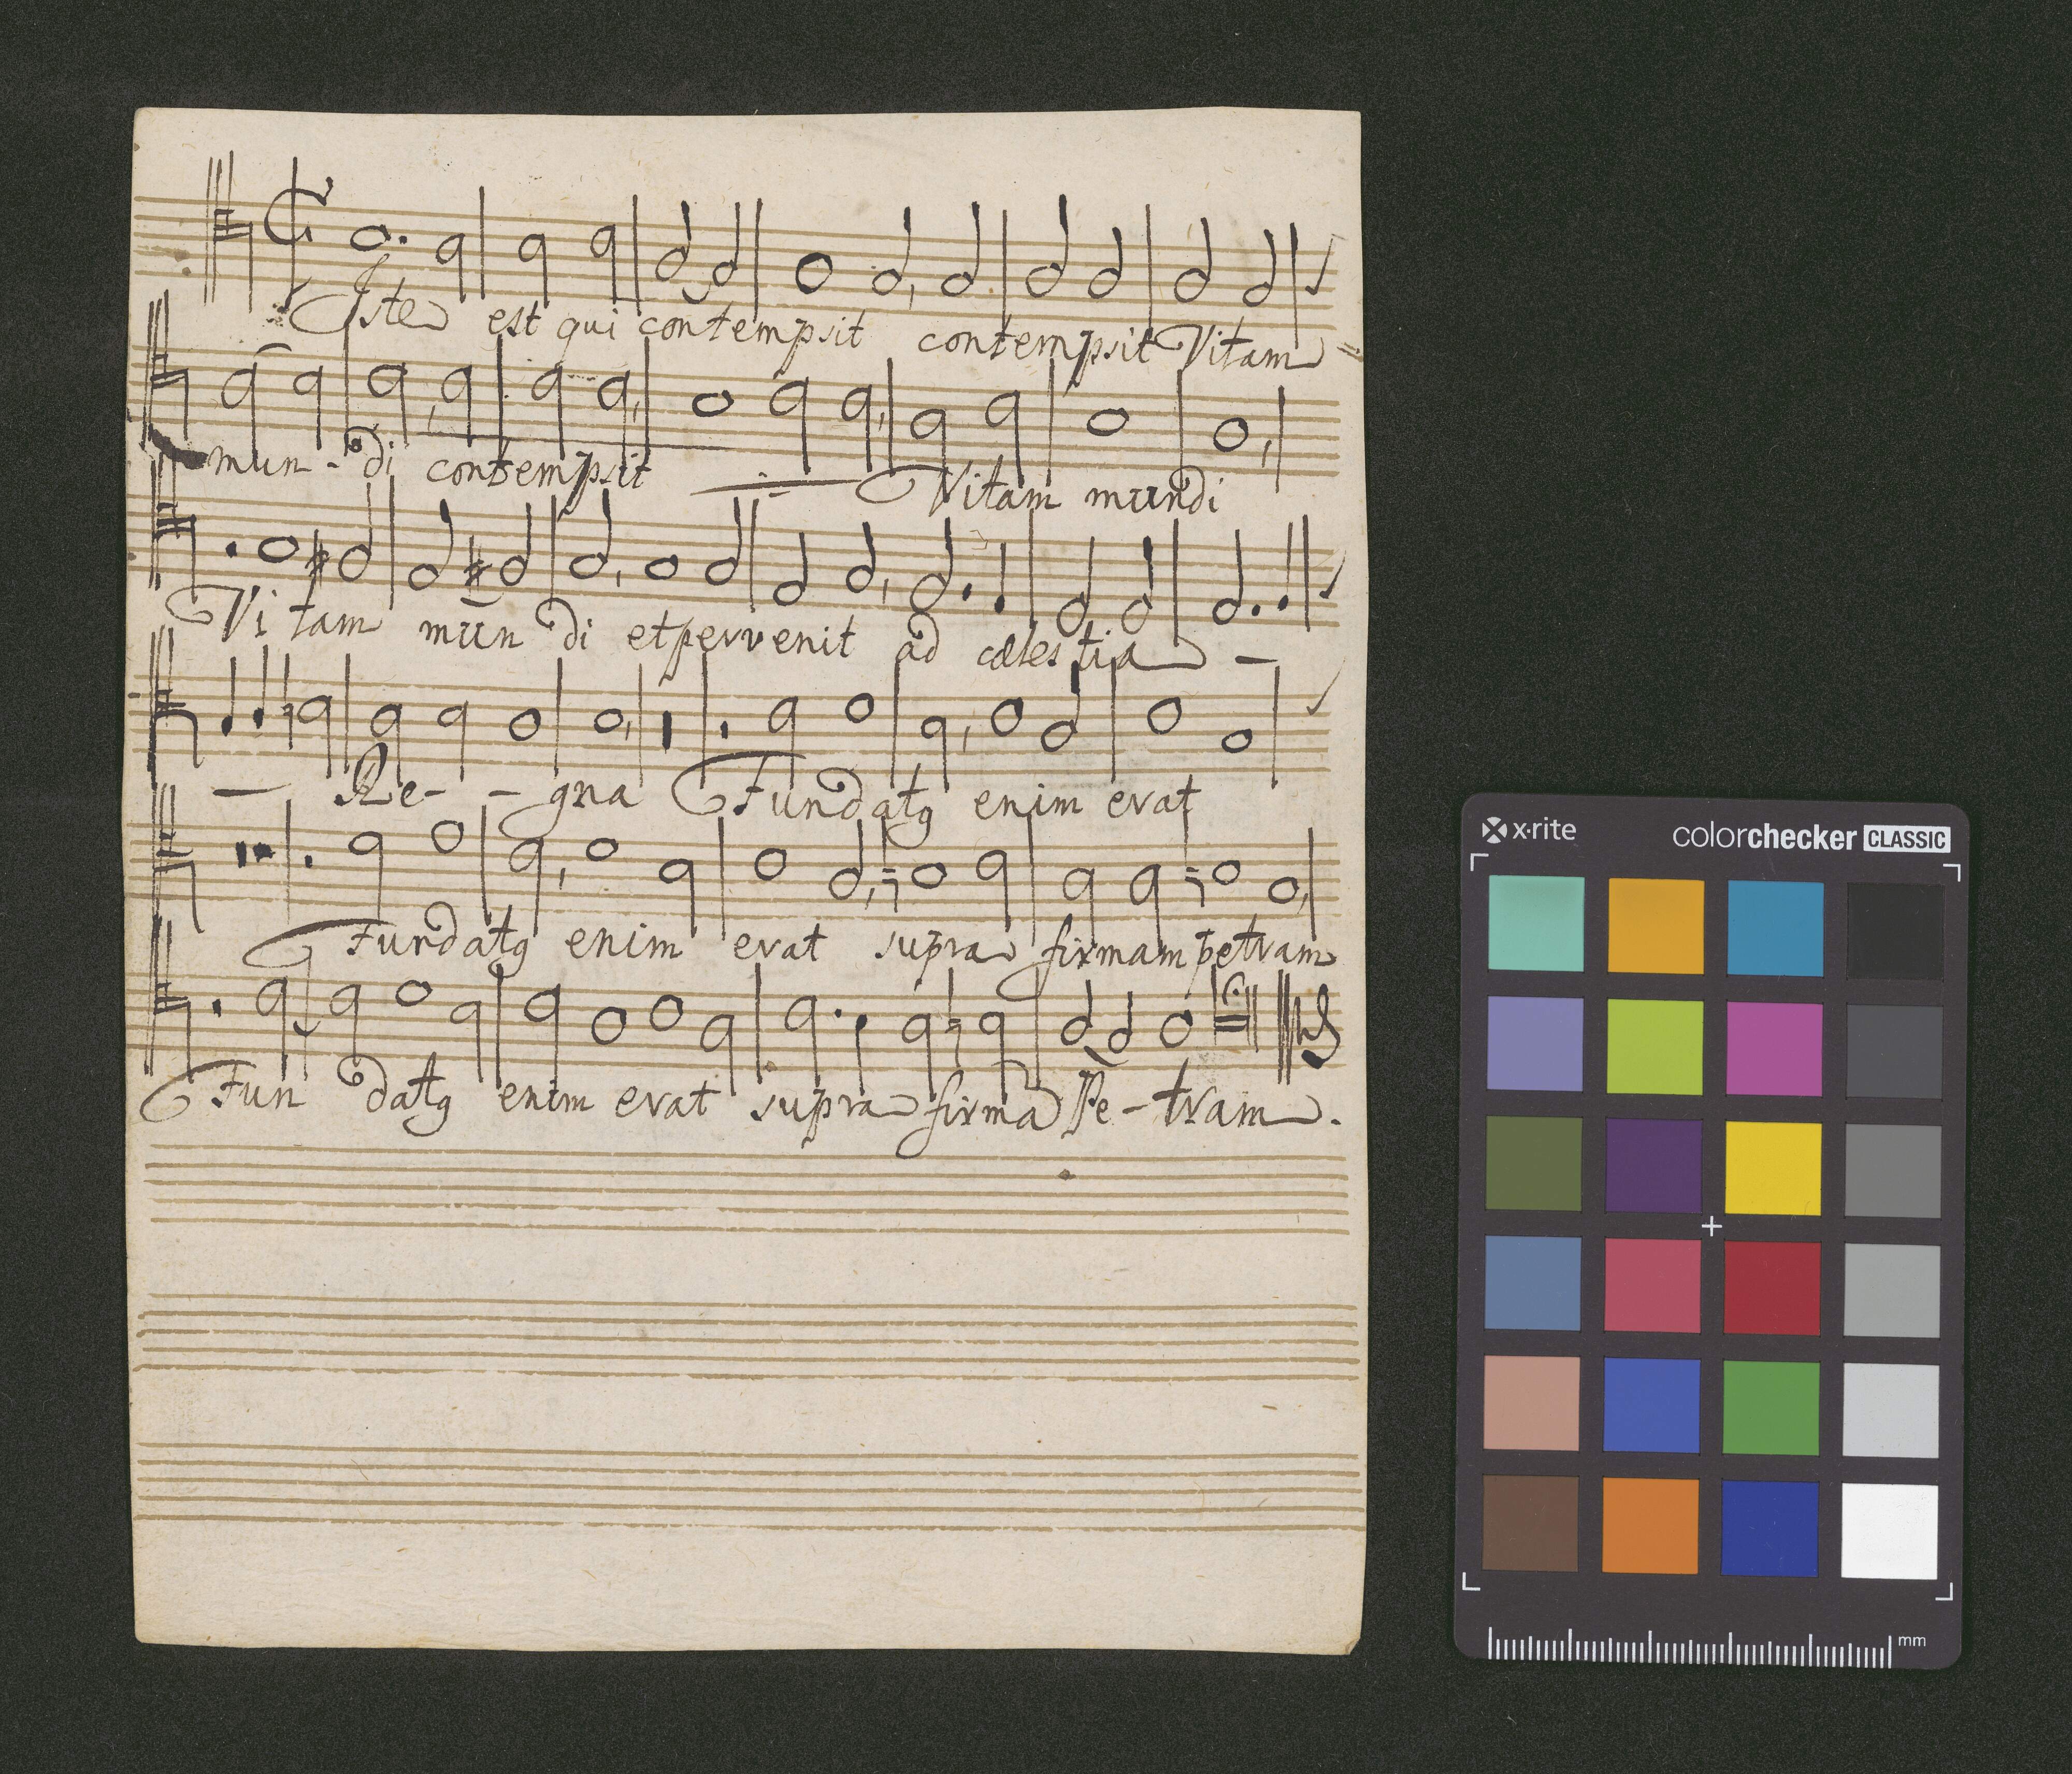 Iste est qui contempsit contempsit Vitam
mun - di contempsit Vitam mundi
Vi tam mun di et pervenit ad cœles tia -
- Re - - gna Fundatg enim erat
Fundatg enim erat supra firmam petram
Fun datg enim erat supra firma Pe - tram.
x·rite colorchecker CLASSIC
mm